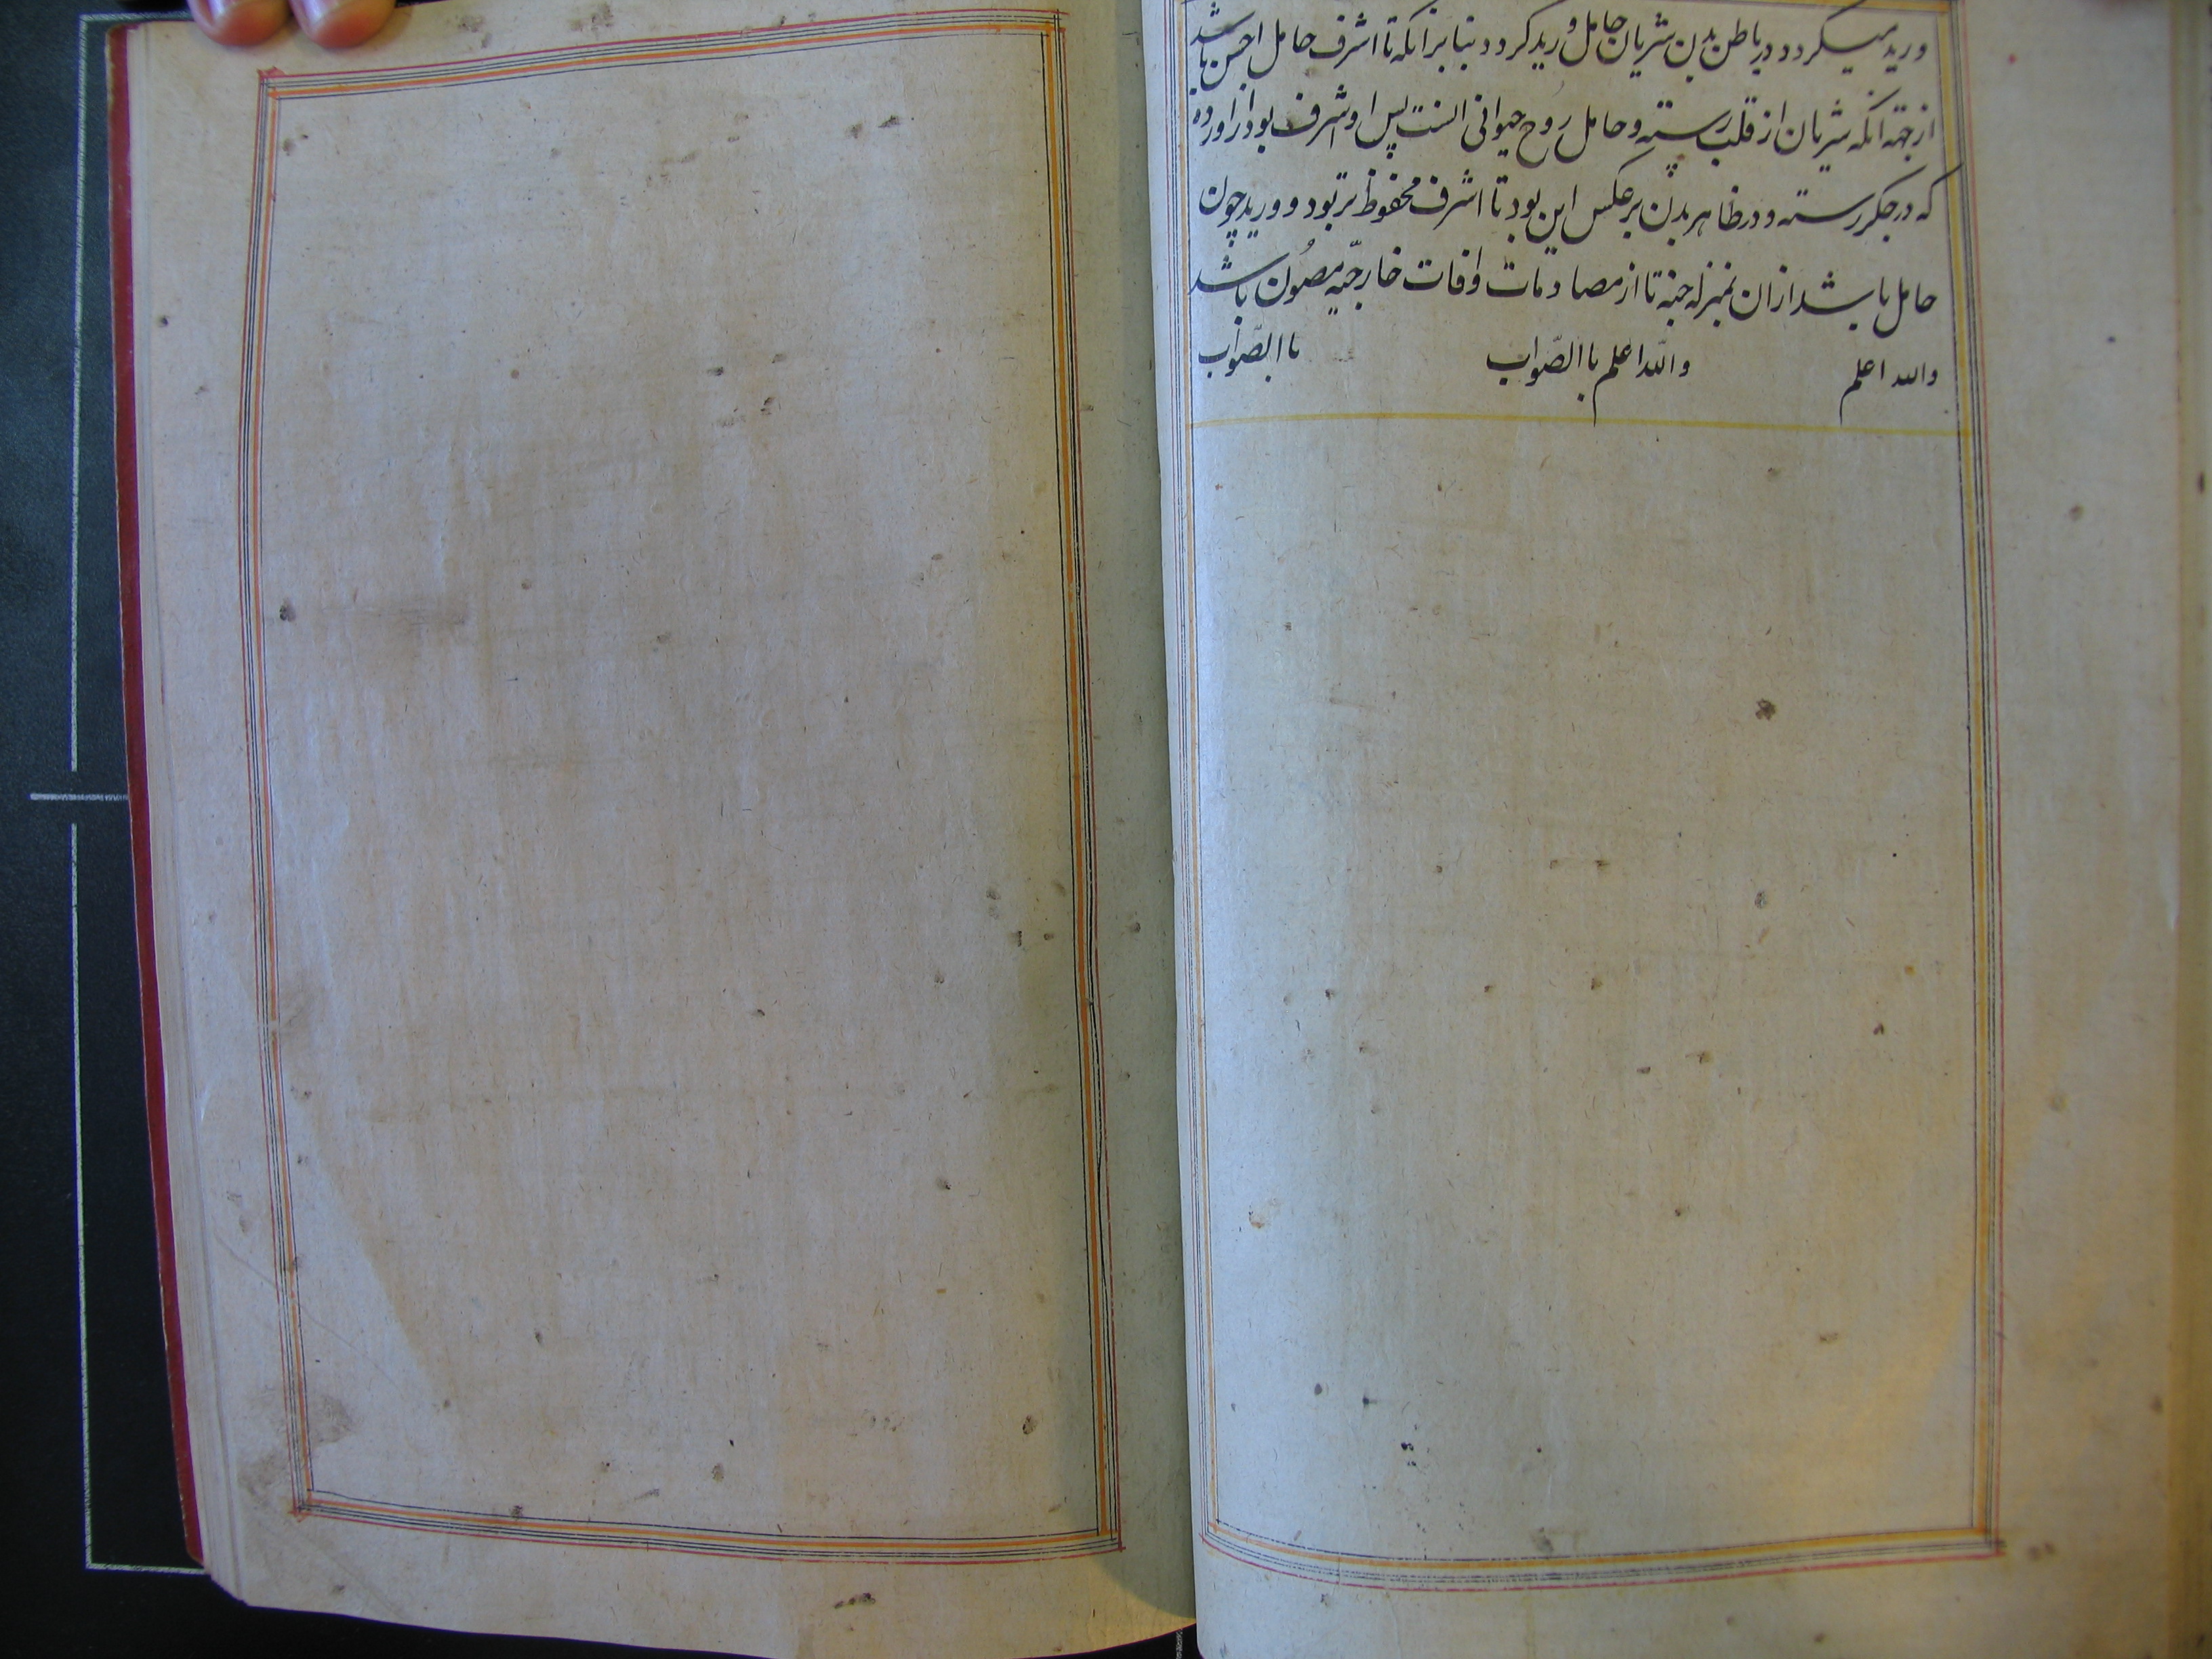 ورید میگردد در باطن بدن شریان حامل ورید کردد بنا برانکه تا اشرف حامل اخس باشد
از جهة انکه شریان از قلب رسته و حامل روح حیوانی است پس او اشرف بود از اورده
که در جکر رسته و در ظاهر بدن بر عکس این بود تا اشرف محفوظ تر بود و ورید چون
حامل باشد ازان بمنزله جنه تا از مصادمات وافات خارجیّه مصُون باشد
والله اعلم والله اعلم باالصّواب باالصّواب